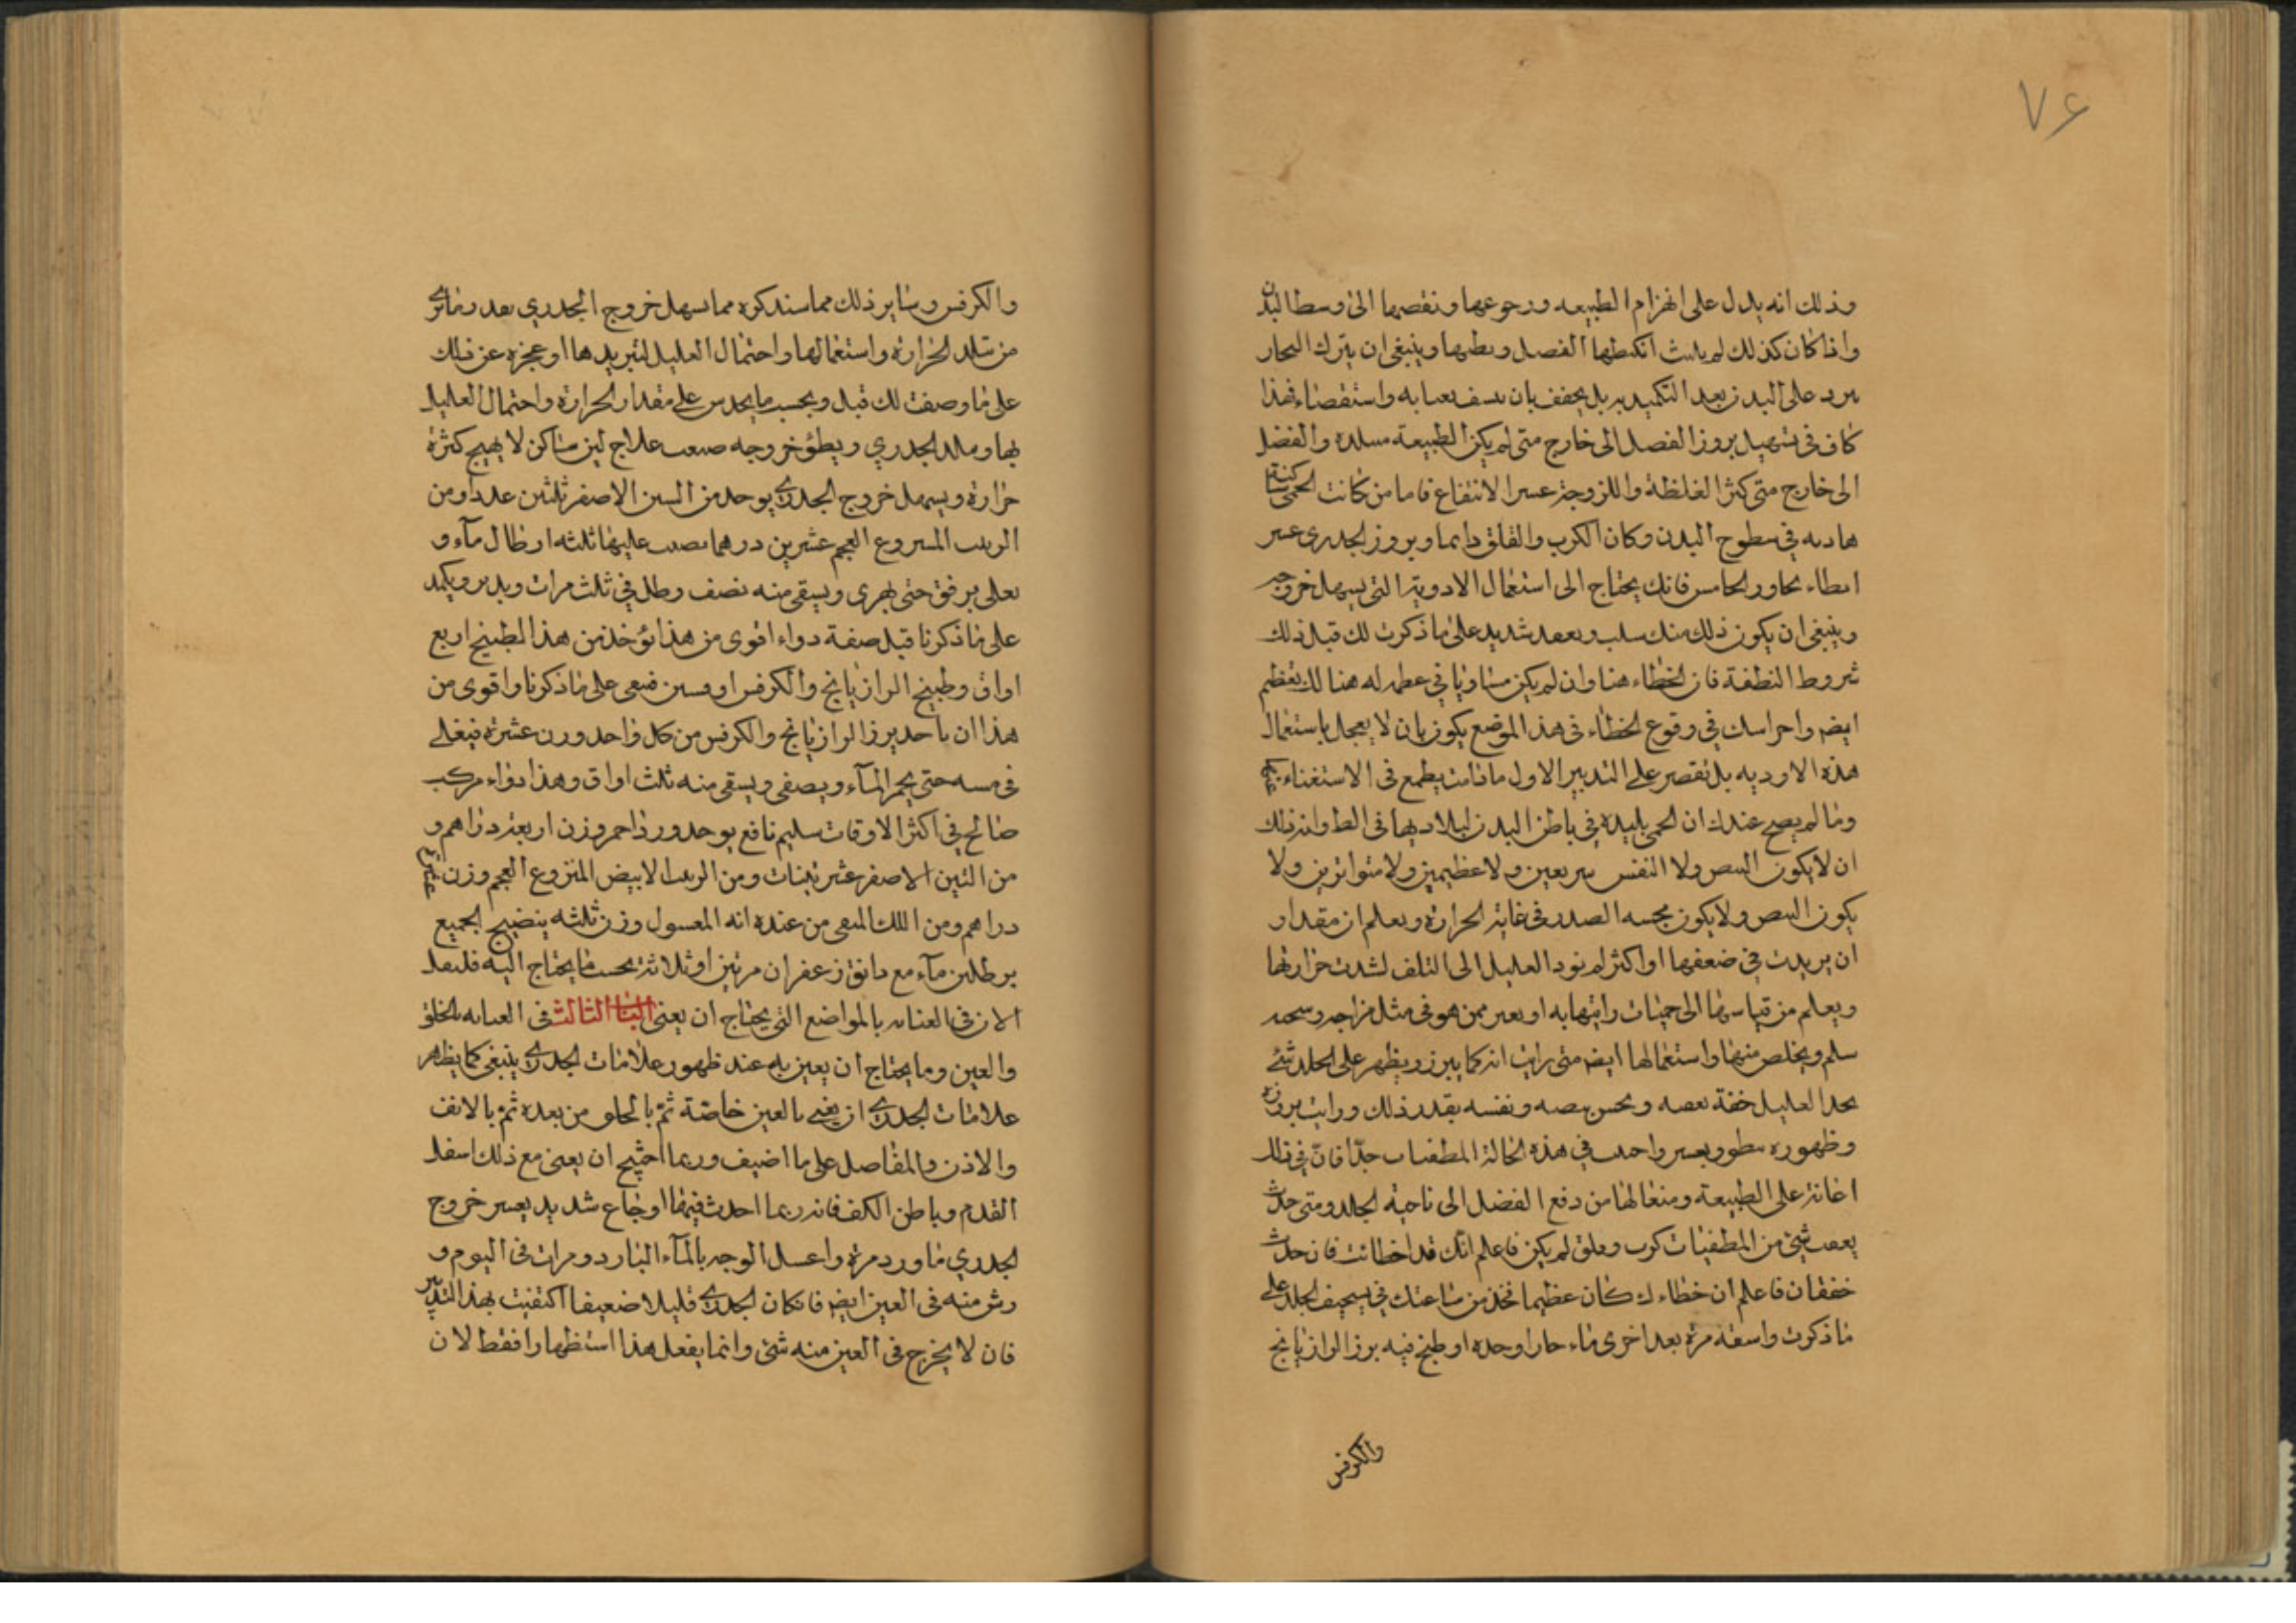 ٧٤
وذلك انه يدل على انهزام الطبيعه ورجوعها ونقصيها الى وسط البدن
واذا كان كذلك لم يلبث انكبطها الفصل وبطيها وينبغى ان يترك البخار
يرد على البدن بعد التكميد بربل يجفف بان يسف بعنايه واستقصاء فهذا
كاف فى تسهيل بروز الفصل الى خارج متى لم يكن الطبيعة مسلدة والفضل
الى خارج متى كثر الغلظة واللزوجة عسر الانتفاع فاما من كانت الحمى ساكنة
هاديه فى سطوح البدن وكان الكرب والقلق دايما وبروز الجدرى عسر
ابطاء يحاور الخامس فانك يحتاج الى استعمال الادوية التى يسهل خروجه
وينبغى ان يكون ذلك منك وبعد شديد على ما ذكرت لك قبل ذلك
شروط النطفة فان الخطاء هنا وان لم يكن مساويا فى عطمه له هنالك بعظم
ايض واحراسك فى وقوع الخطاء فى هذا الموضع يكون بان لا يعجل باستعمال
هذه الاوديه بل تقصر على التدبير الاول ما دامت يطمع فى الاستغناء عنه
وما لم يصح عندك ان الحمى بليده فى باطن البدن لبلاديها فى الط وانذلك
ان لا يكون النبص ولا النفس سريعين ولا عظيمين ولا متواترين ولا
يكون النبص ولا يكون مجسه الصدر فى غاية الحرارة ويعلم ان مقدار
ان يريدت فى ضعفها او اكثر لم نود العليل الى التلف لشدت حرارتها
ويعلم من قياسها الى حميات رايتها به او بعير ممن هو فى مثل مزاجه وسحنه
سلم ويخلص منها واستعمالها ايض متى رايت انه كما يبرز ويظهر على الجلد شئ
يحد العليل خفة بعصه ويحس نبصه ونفسه بقدر ذلك ورايت بروزه
وظهوره ببطو وبعسر واحدب فى هذه الحالة المطفيات جدّا فانّ فى ذلك
اعانة على الطبيعة ومنعا لها من دفع الفضل الى ناحية الجلد ومتى حدث
بعقب شئ من المطفيات كرب وقلق لم يكن فاعلم انّك قد اخطات فان حدث
خفقان فاعلم ان خطاءك كان عظيما فخذ من ساعتك فى تسخيف الجلد على
ما ذكرت واسقه مرة بعد اخرى ماء حارا وحده او طبخ فيه برز الرازيانج
والكرفس
والكرفس وساير ذلك مما سنذكره مما يسهل خروج الجدري بعد رما ترى
من تبلد الحرارة واستعمالها واحتمال العليل لتبريدها او عجزه عن ذلك
على ما وصفت لك قبل وبحسب ما يحدس على مقدار الحرارة واحتمال العليل
لها ومالد الجدري ويطؤ خروجه صعب علاج لين ساكن لا يهيج كثرة
حرارة ويسهل خروج الجدرى يوحد من التين الاصفر ثلثين عددا ومن
الزبيب المنزوع العجم عشرين درهما يصب عليها ثلثه ارطال مآء و
يعلى برفق حتى يهرى ويسقى منه نصف رطل فى ثلث مرات ويدبر ويكمد
على ما ذكرنا قبل صفة دواء اقوى من هذا تؤخذ من هذا الطبيخ اربع
اواق وطبيخ الرازيانج والكرفس اوقيتين فيعى على ما ذكرنا واقوى من
هذا ان ياخذ برز الرازيانج والكرفس من كل واحد وزن عشرة فيغلى
فى مسه حتى يحمر المآء ويصفى ويسقى منه ثلث اواق وهذا دواء مركب
صالح فى اكثر الاوقات سليم نافع يوحد ورد احمر وزن اربعة دراهم و
من التين الاصفر عشر تينات ومن الزبيب الابيض المنزوع العجم وزن عشرة
دراهم ومن اللك المنقى من عنده انه المعسول وزن ثلثه ينضيج الجميع
برطلين مآء مع دانق زعفران مرتين او ثلاثة بحسب ما يحتاج اليه فليعد
الان فى العنايه بالمواضع التى يحتاج ان يعنى الباب الثالث فى العنايه بالحلق
والعين وما يحتاج ان يعين به عند ظهور علامات الجدرى ينبغى كما يظهر
علامات الجدرى ان يعنى بالعين خاصّة ثمّ بالحلق من بعده ثمّ بالانف
والاذن والمفاصل على ما اضيف وربما احتيج ان يعنى مع ذلك اسفل
القدم وباطن الكف فانه ربما احدث فيهما اوجاع شديد يعسر خروج
الجدري ماورد مرة واغسل الوجه بالمآء البارد ومرات فى اليوم و
رش منه فى العين ايض فان كان الجدرى قليلا ضعيفا اكتفيت بهذا التدبير
فان لا يخرج فى العين منه شئ وانما يفعل هذا استظهارا فقط لان